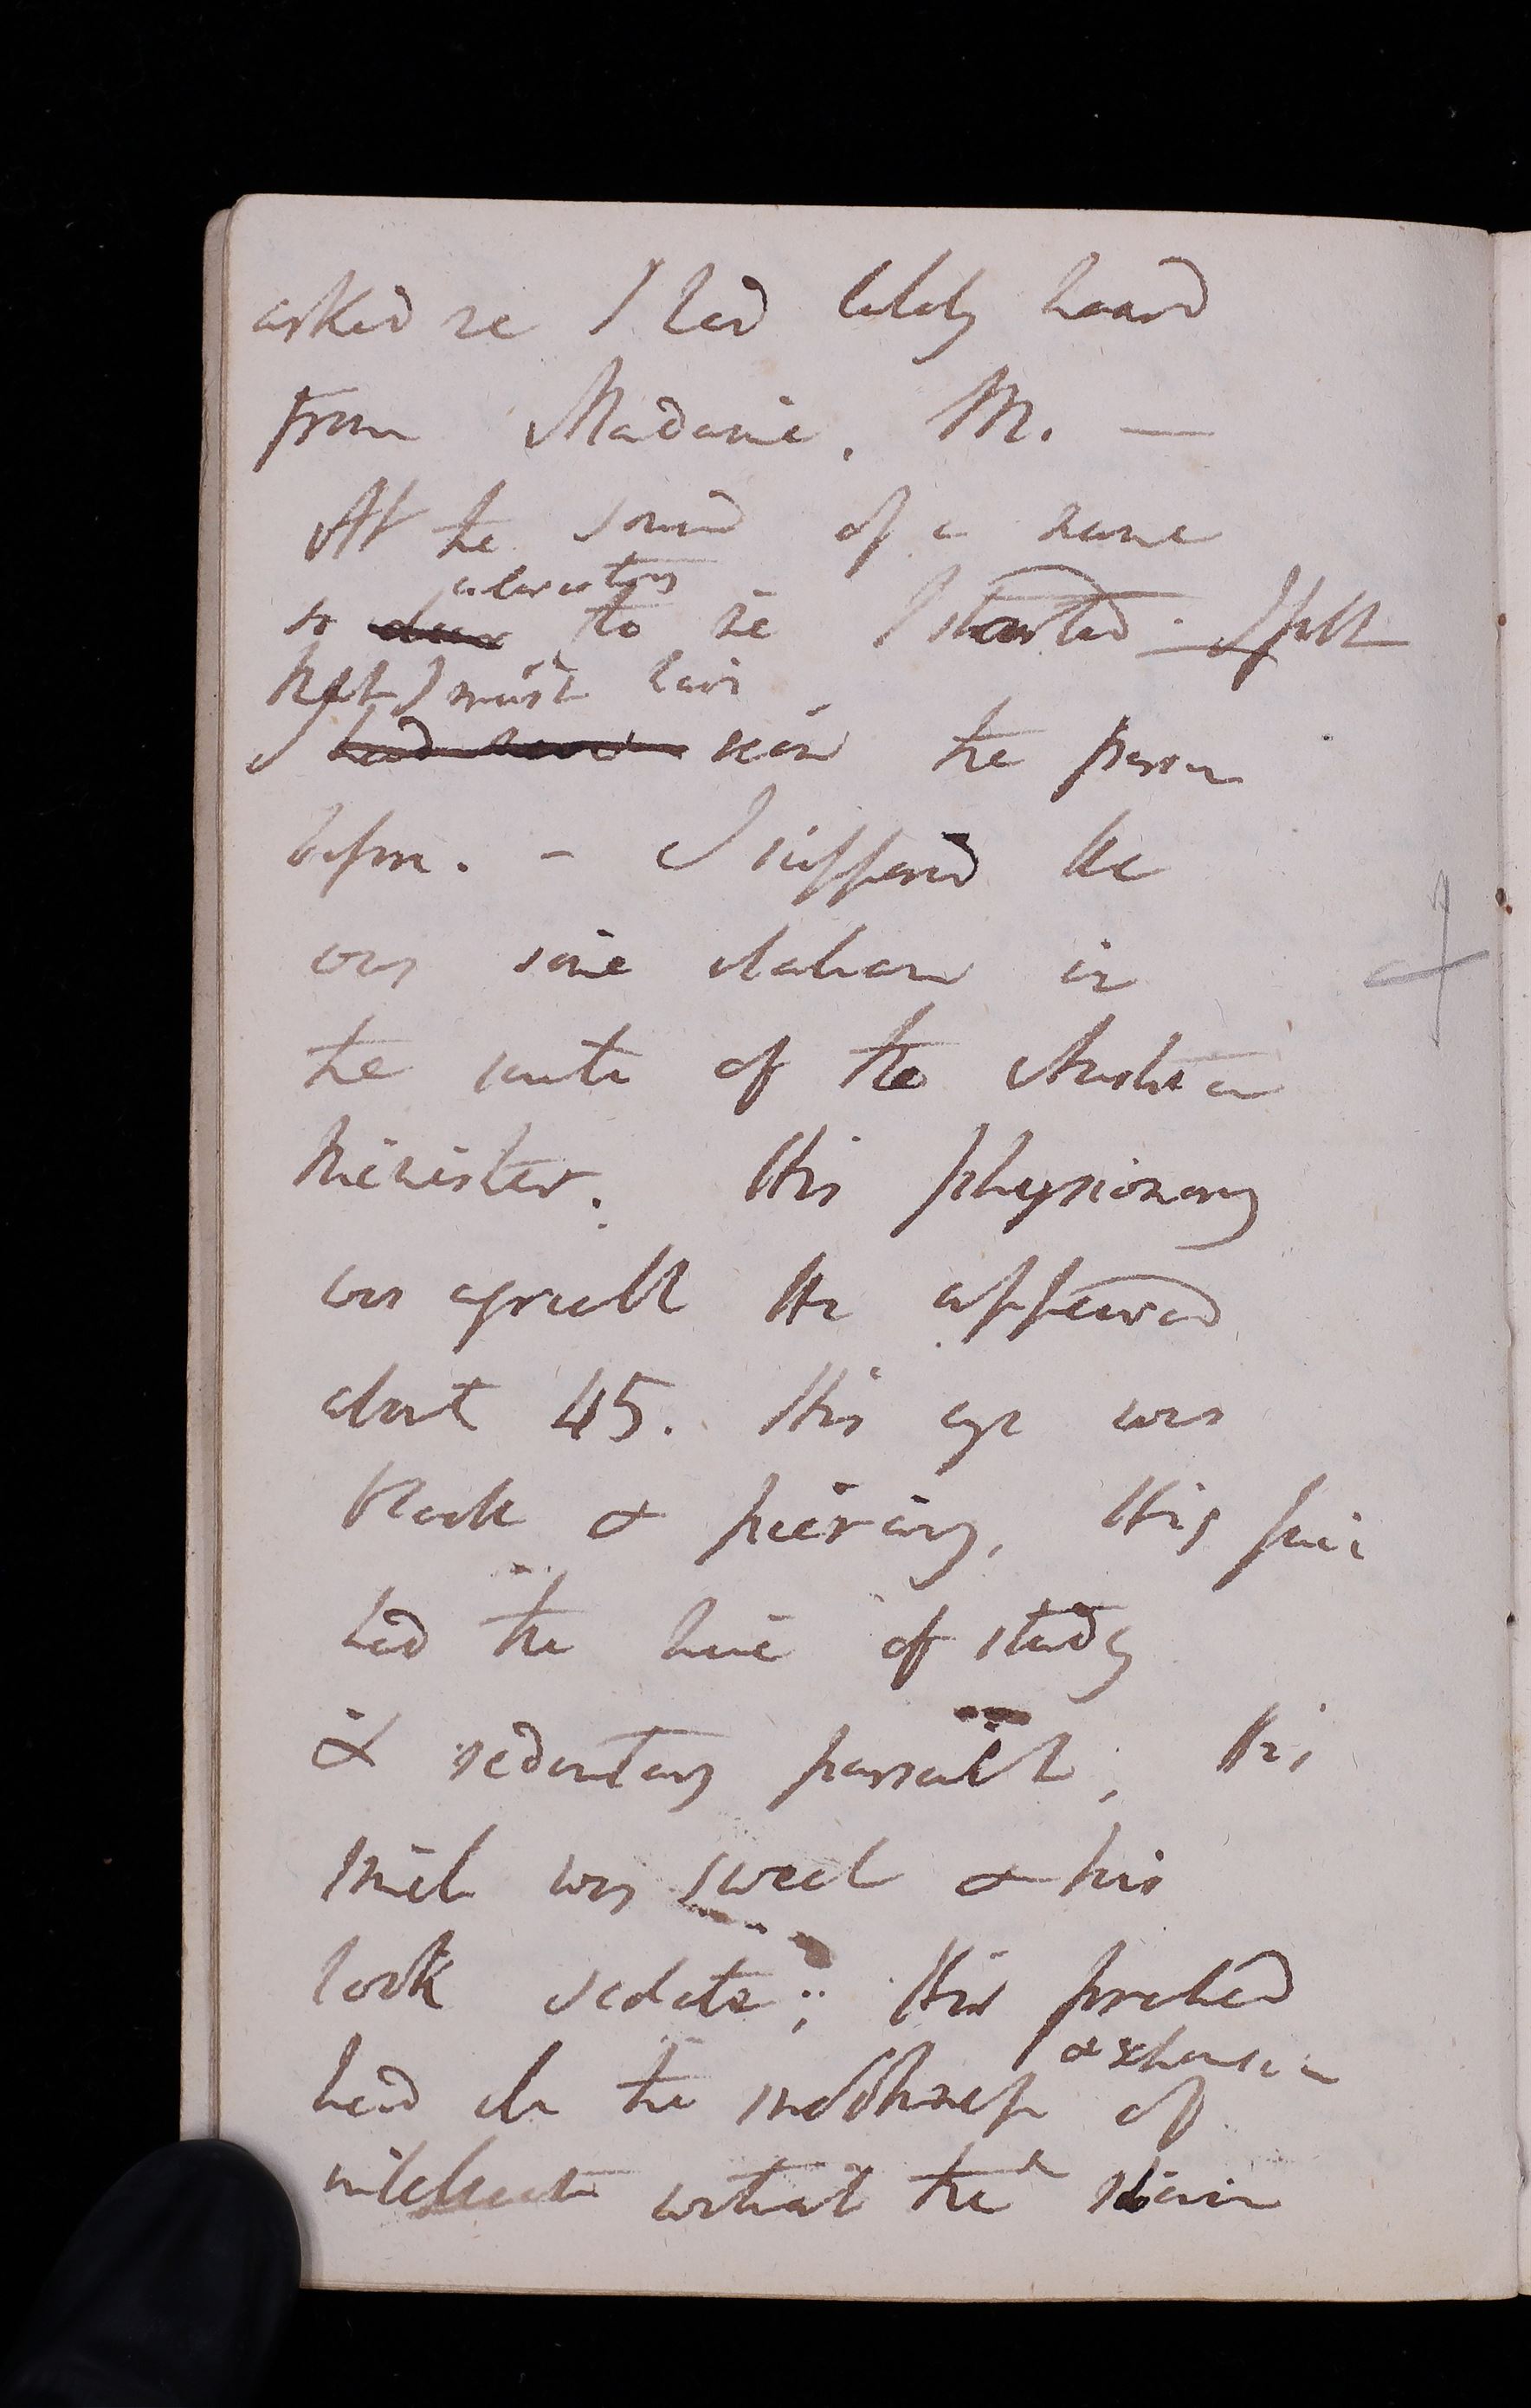 asked me I had lately heard
from Madame. M. —
At the sound of a name
interesting
so dear to me I started. I felt
that I must have
I had never seen the person
before. – I supposed he
was some Italian in
the suite of the Austrian
Minister. His physionomy
was agreeable He appeared
about 45. His eye was
black & piercing, His face
had the hue of study
& sedentary pursuit; His
smile was sweet & his
look sedate; His forehead
& expansion
had all the smoothness of
intellect without the